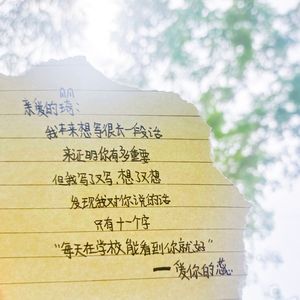 亲爱的琦：
我本来想写很长一段话
来证明你有多重要
但我写了又写，想了又想
发现我对你说的话
只有十一个字
“每天在学校能看到你就好”
——爱你的蕊